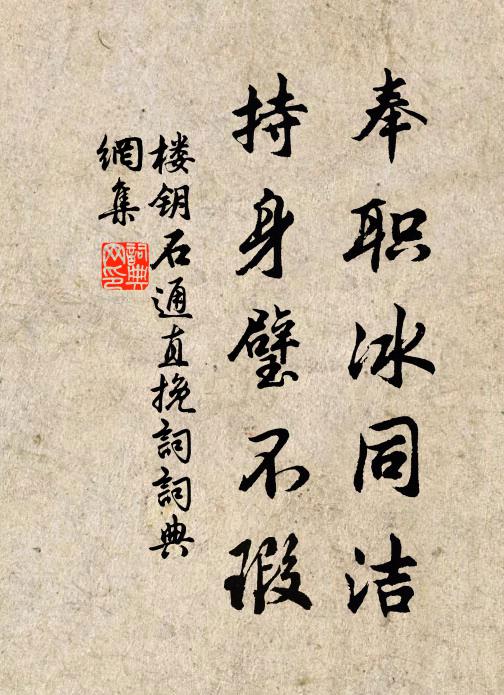 奉职冰同洁
持身璧不瑕
楼钥石通直挽词词典
網集
詞典
网印